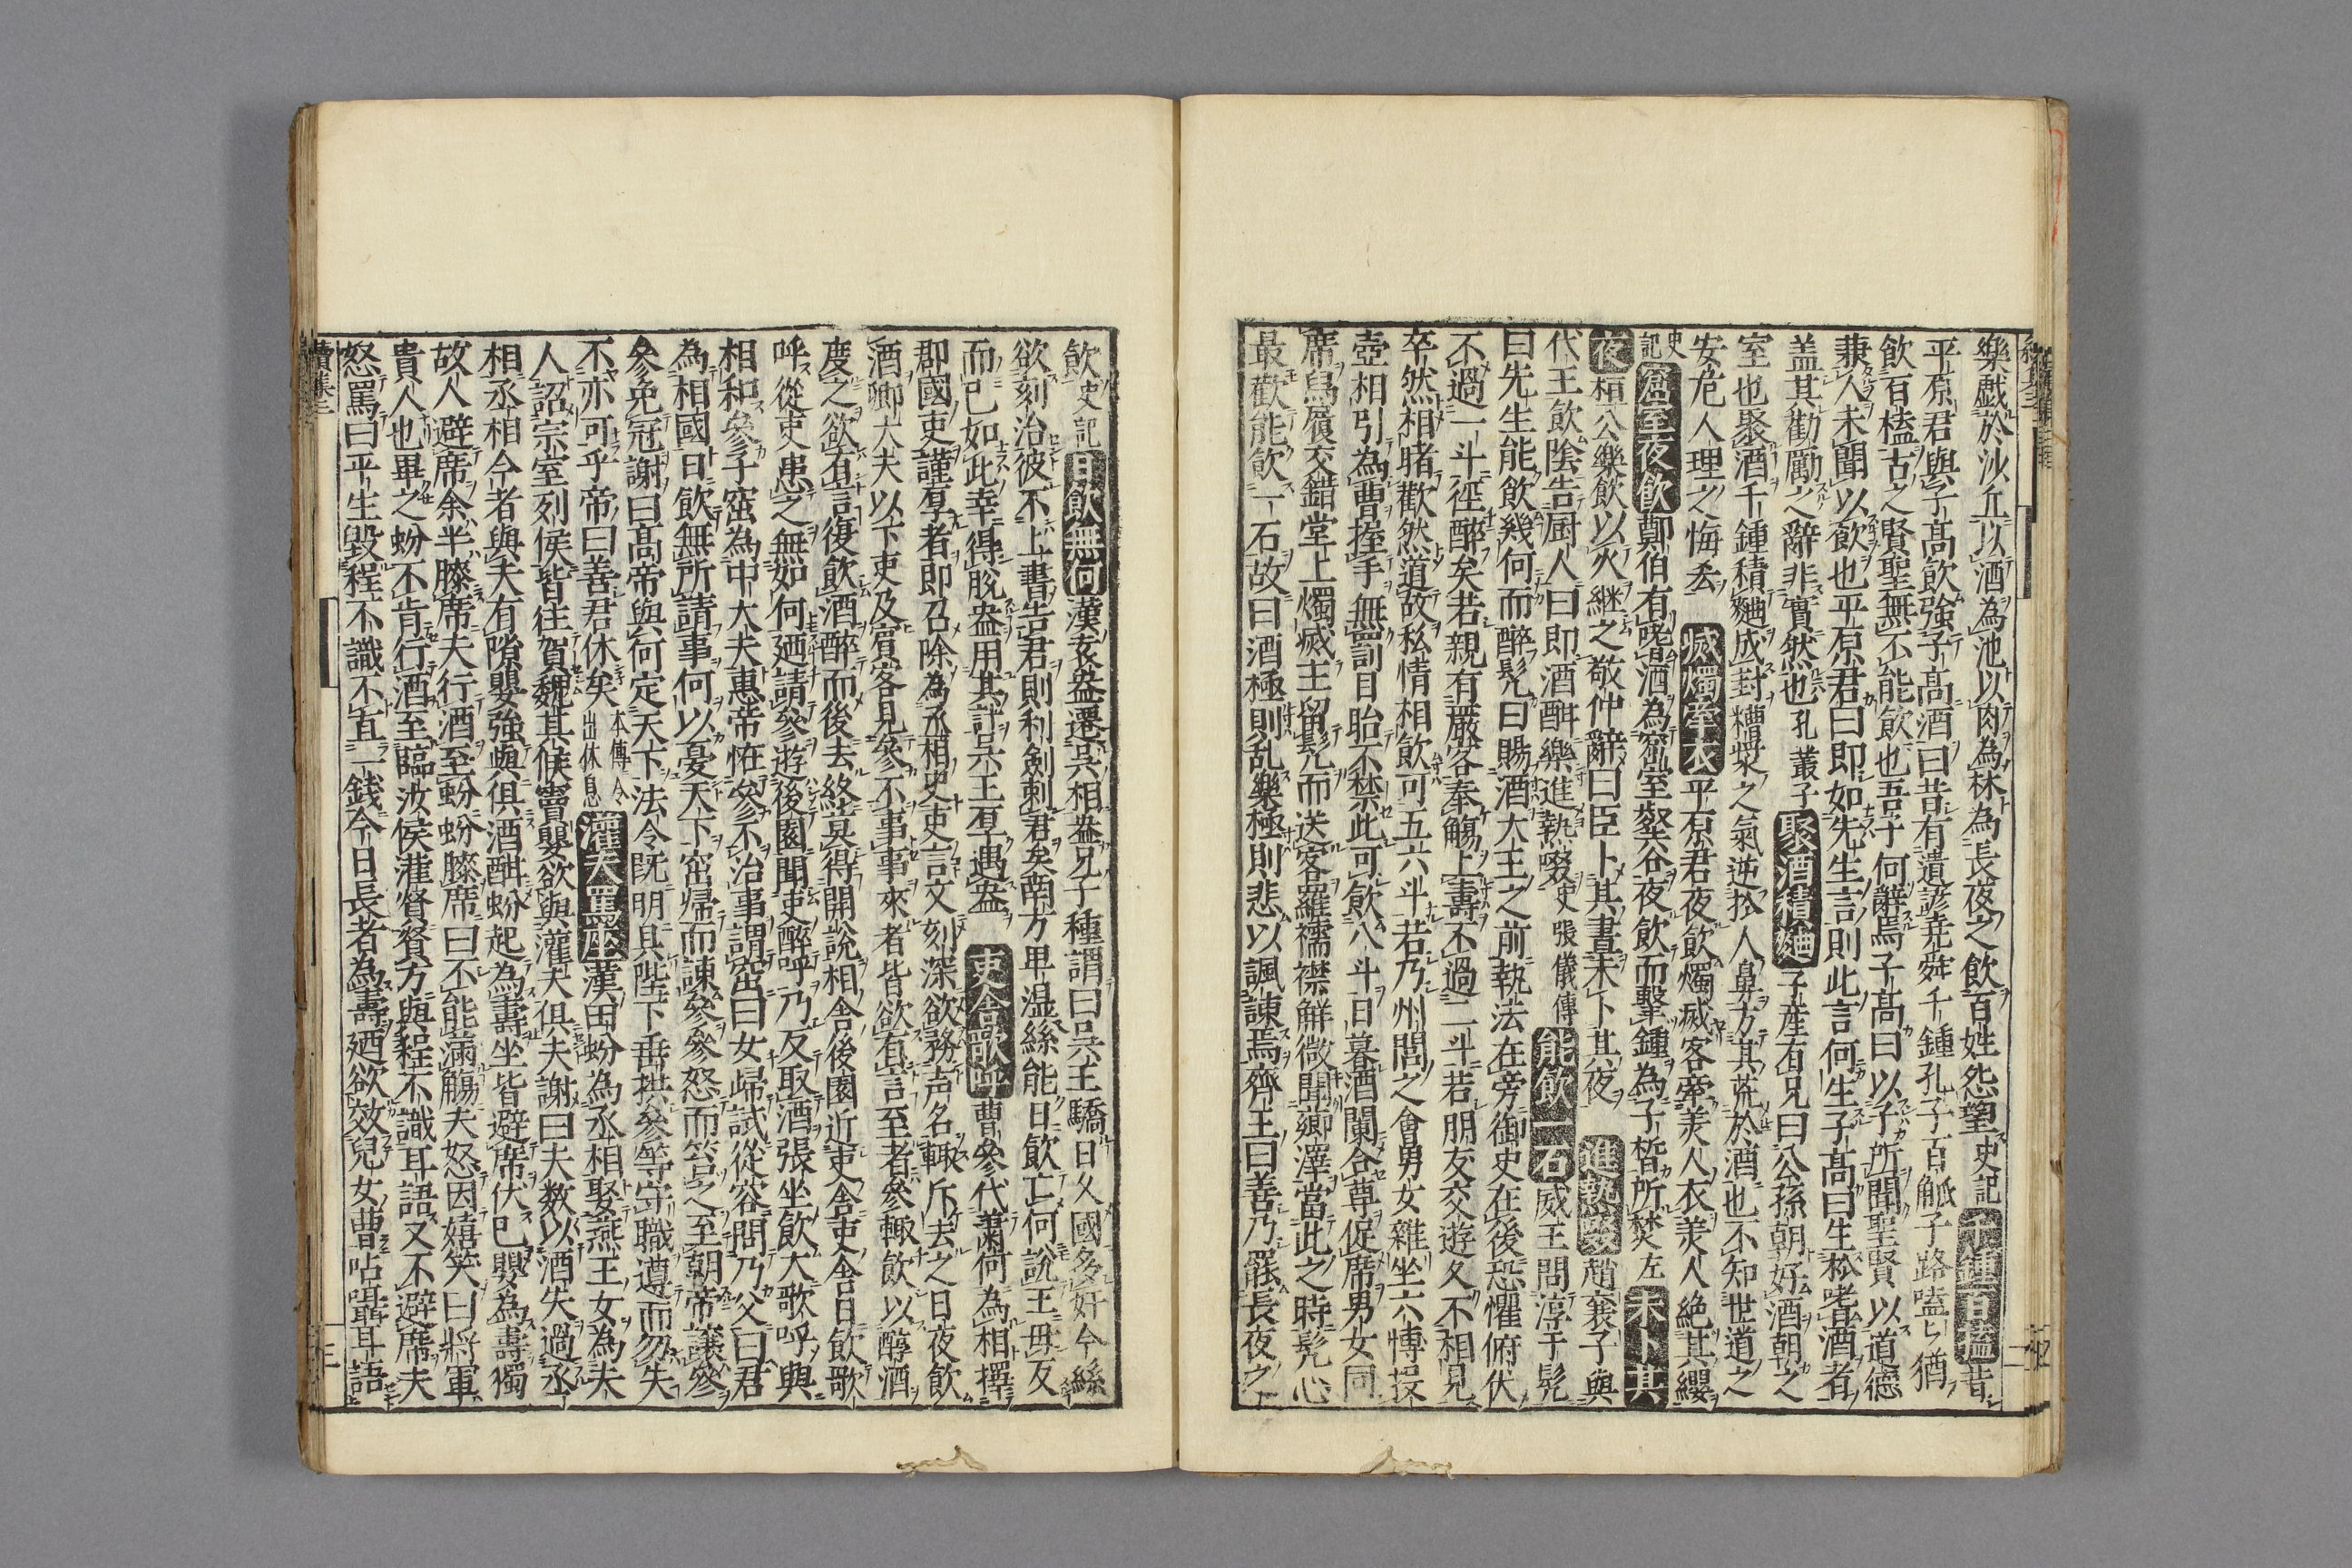 樂戲於沙丘以酒為池以肉為林為長夜之飲百姓怨望史記千鍾百榼昔
平原君與子高飲強子高酒曰昔有遺諺堯舜千鍾孔子百觚子路嗑〻猶
飲百榼古之賢聖無不能飲也吾子何辭焉子高曰以子所聞聖賢以道德
兼人未聞以飲也平原君曰即如先生言則此言何生子高曰生於嗜酒者
盖其勸厲之辭非實然也孔叢子聚酒積麯子産有兄曰公孫朝好酒朝之
室也聚酒千鍾積麯成封糟漿之氣逆於人鼻方其荒於酒也不知世道之
安危人理之悔吝滅燭牽衣平原君夜飲燭滅客牽美人衣美人絶其纓
史記窟室夜飲鄭伯有嗜酒為窟室壑谷夜飲而擊鍾為子皙所焚左未卜其
夜桓公樂飲以火継之敬仲辭曰臣卜其晝未卜其夜進熱啜趙襄子與
代王飲陰告厨人曰即酒酣樂進熱啜史張儀傳能飲一石威王問淳于髠
曰先生能飲幾何而醉髠曰賜酒大王之前執法在旁御史在後恐懼俯伏
不過一斗徑醉矣若親有嚴客奉觴上壽不過二斗若朋友交遊久不相見
卒然相睹歡然道故私情相飲可五六斗若乃州閭之會男女雜坐六博投
壺相引為曹握手無罰目眙不禁此可飲八斗日暮酒闌合尊促席男女同
席舃履交錯堂上燭滅主留髠而送客羅襦襟解微聞薌澤當此之時髠心
最歡能飲一石故曰酒極則乱樂極則悲以諷諫焉齊王曰善乃罷長夜之
飲史記日飲無何漢爰盎遷呉相盎兄子種謂曰呉王驕日久國多奸今絲
欲刻治彼不上書告君則利劍刺君矣南方卑湿絲能日飲亡何說王毋反
而已如此幸得脫盎用其計呉王厚遇盎吏舍歌呼曹參代蕭何為相擇
郡國吏謹厚者即召除為丞相史吏言文刻深欲務声名輒斥去之日夜飲
酒卿大夫以下吏及賓客見參不事事來者皆欲有言至者參輒飲以醇酒
度之欲有言復飲酒醉而後去終莫得開說相舍後園近吏舍吏舍日飲歌
呼從吏患之無如何廼請參遊後園聞吏醉呼乃反取酒張坐飲大歌呼與
相和參子窋為中大夫惠帝恠參不治事謂窋曰女歸試從容問乃父曰君
為相國日飲無所請事何以憂天下窋帰而諫參參怒而笞之至朝帝讓參
參免冠謝曰髙帝與何定天下法令既明具陛下垂拱參等守職遵而勿失
不亦可乎帝曰善君休矣本傳令出休息灌夫罵座漢田蚡為丞相娶燕王女為夫
人詔宗室列侯皆往賀魏其侯竇嬰欲與灌夫俱夫謝曰夫数以酒失過丞
相丞相今者與夫有隙嬰強與俱酒酣蚡起為壽坐皆避席伏已嬰為壽獨
故人避席余半膝席夫行酒至蚡蚡膝席曰不能滿觴夫怒因嬉笑曰將軍
貴人也畢之蚡不肯行酒至臨汝侯灌賢賢方與程不識耳語又不避席夫
怒罵曰平生毀程不識不直一錢今日長者為壽廼欲效兒女曹呫囁耳語
續集三
三